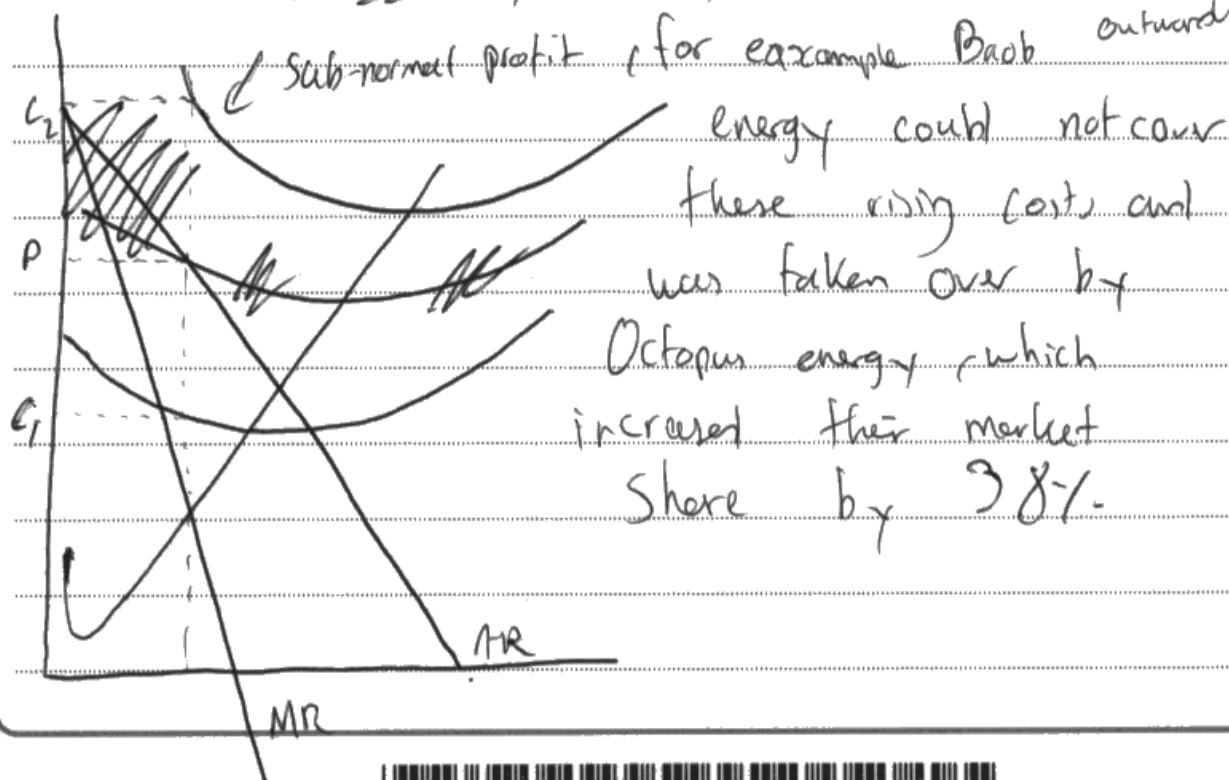 outward
sub-normal profit, for eaxample Baob
C2
energy could not cover
these rising costs and
P
was taken over by
Octopus energy, which
C1
increased their market
share by 38%.
AR
MR